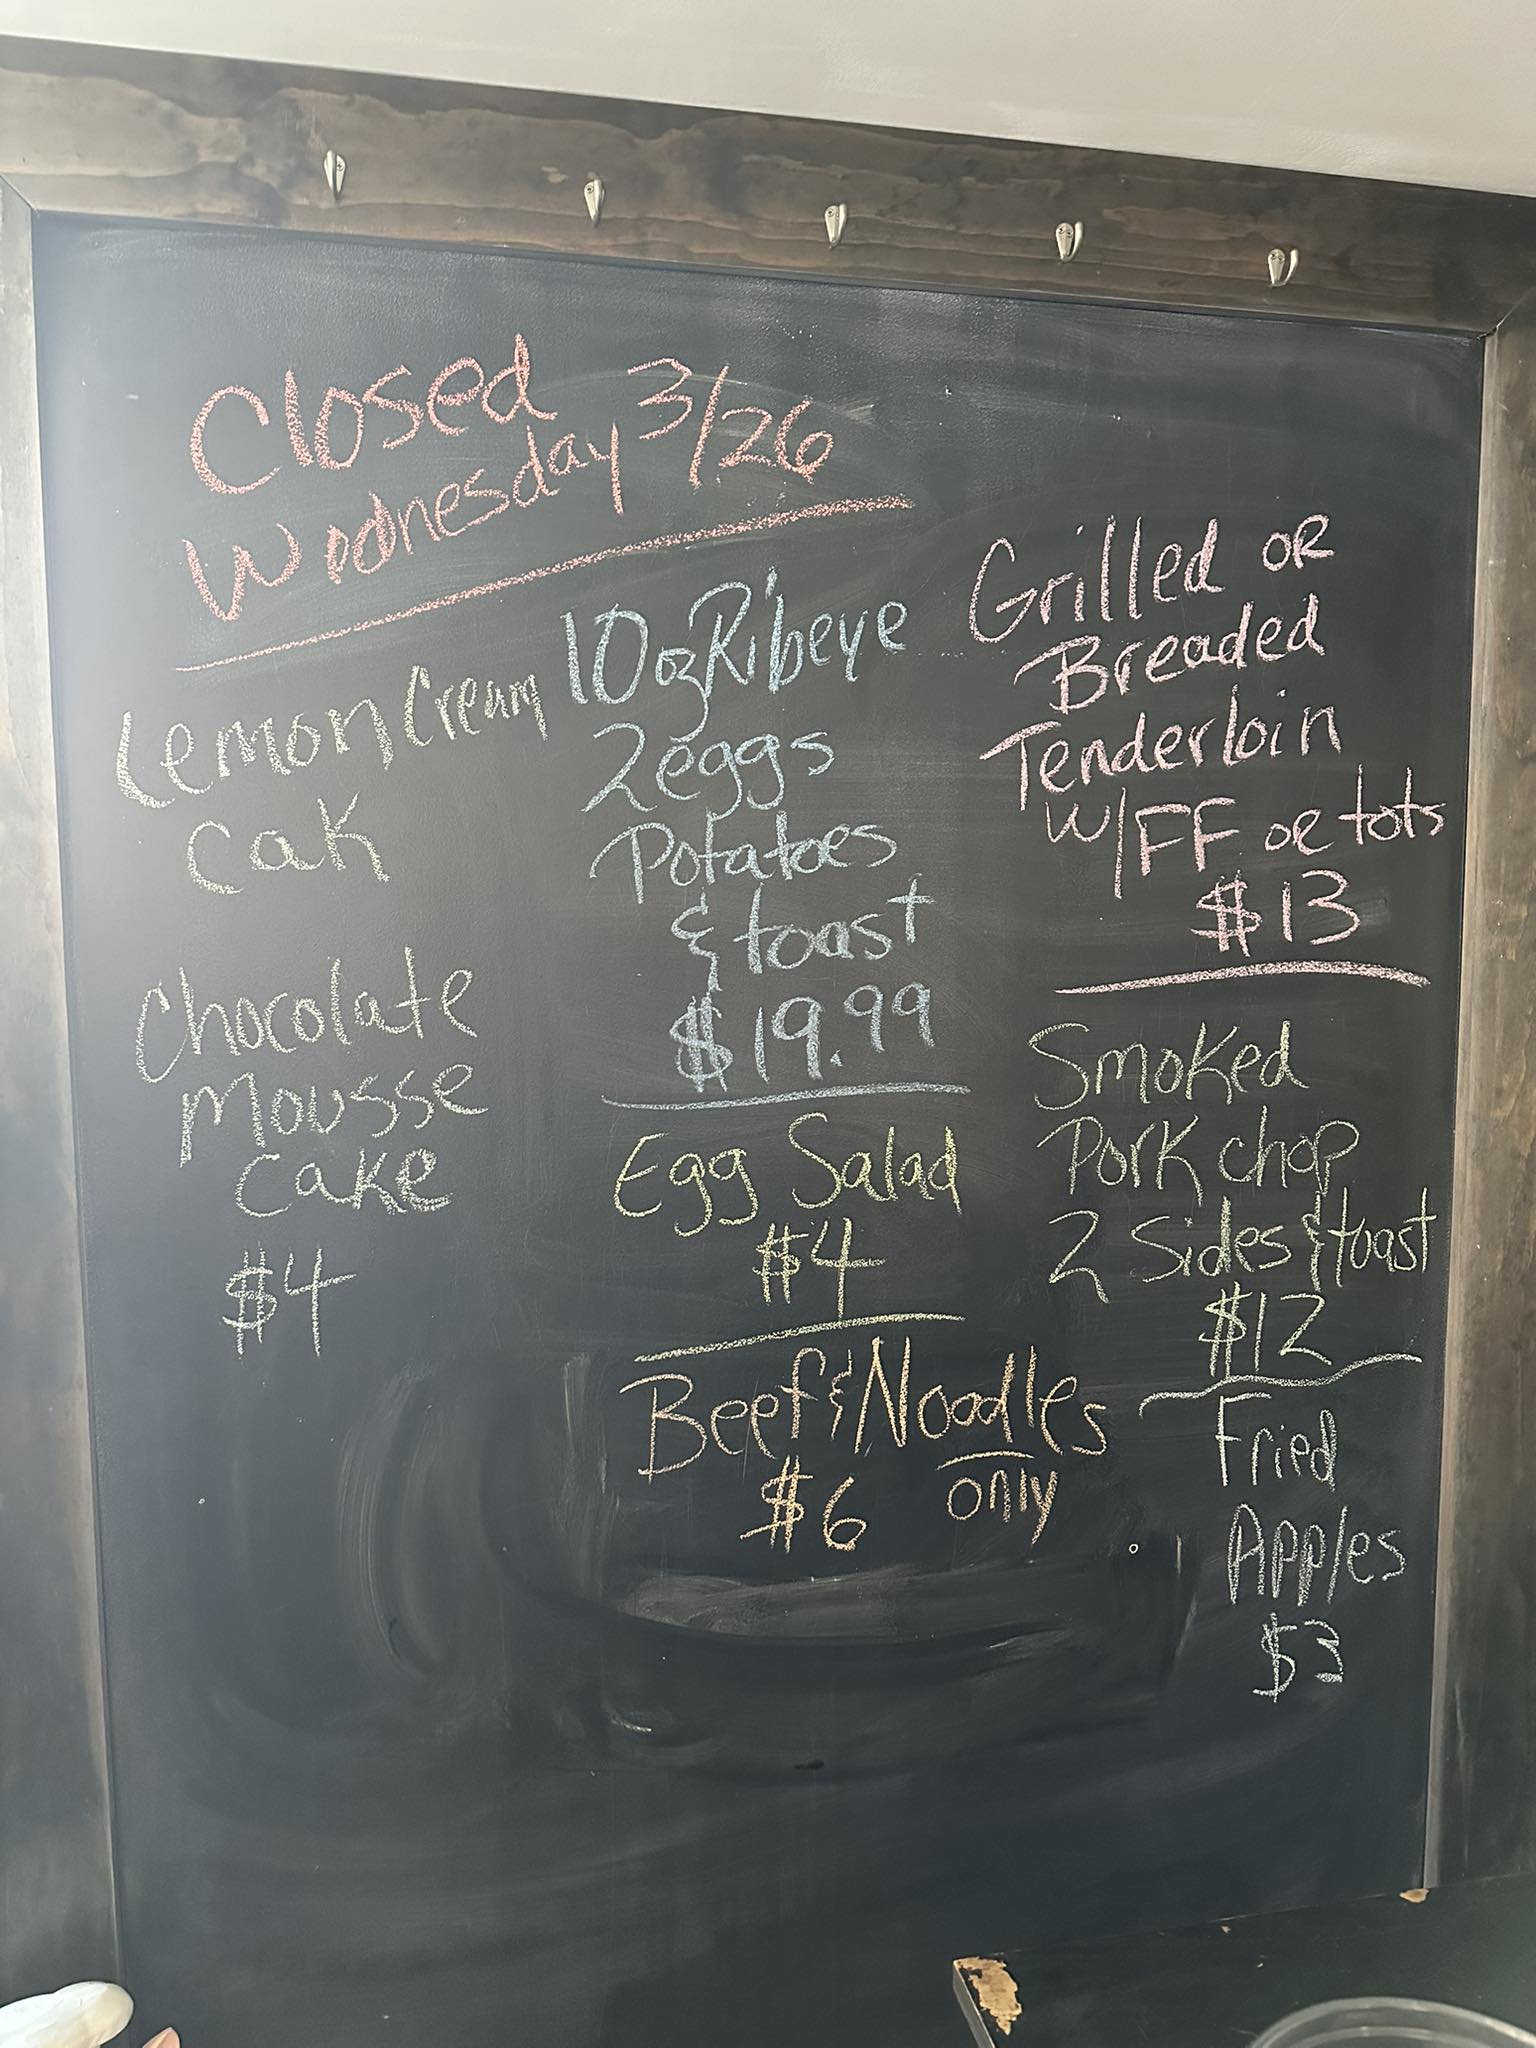 Closed
Wednesday 3/26
Lemon Cream
Cak
Chocolate
Mousse
Cake
$4
10oz Ribeye
2eggs
Potatoes
& toast
$19.99
Egg Salad
$4
Beef & Noodles
$6 only
Grilled OR
Breaded
Tenderloin
W/FF or tots
$13
Smoked
Pork chop
2 Sides & toast
$12
Fried
Apples
$3